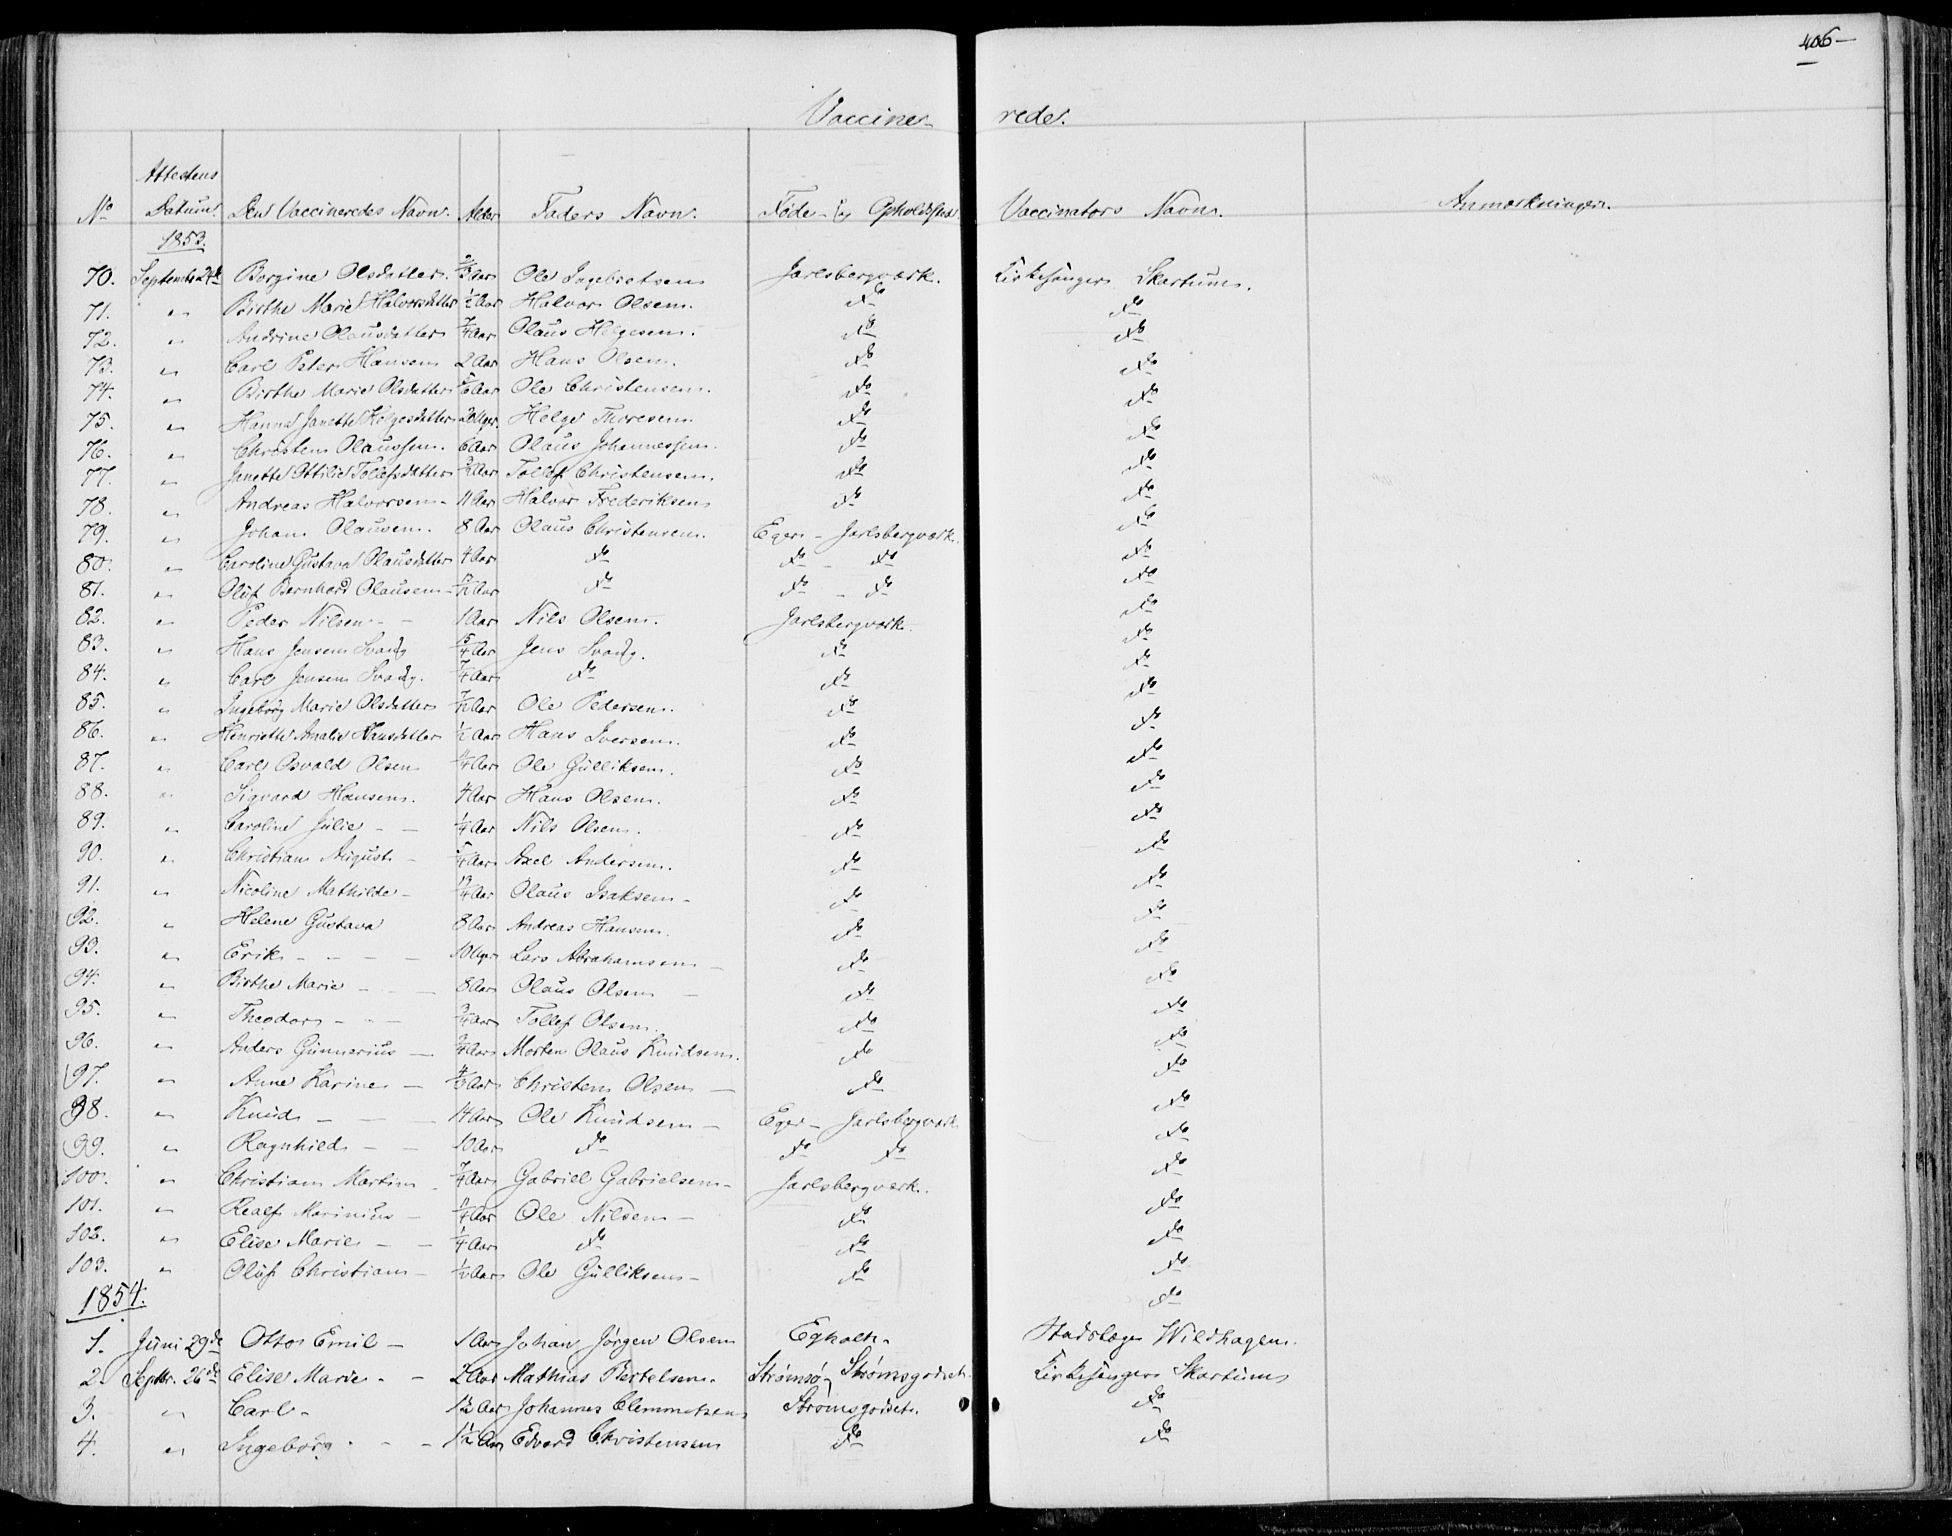 406
Vaccine- rede.
Attestens
No Datum. Den Vaccineredes Navn. Alder Faders Navn. Føde- og Opholdssted. Vaccinators Navn. Anmærkninger.
1853.
70. September 24de Borgine Olsdatter. Aar Ole Ingebretsen Jarlsbergværk. Kirkesanger Skartum.
71. " Birthe Marie Halvorsdatter 1/2 Aar Halvor Olsen. do do
72. " Andrine Olausdatter 7/4 Aar Olaus Helgesen. do do
73. " Carl Peter Hansen 2 Aar Hans Olsen. do do
74. " Birthe Marie Olsdatter Aar Ole Christensen. do do
75. " Hanna Janette Helgesdatter 20 Uger. Helge Thoresen. do do
76. " Christen Olaussen. 6 Aar Olaus Johannessen. do do
77. " Janette Ottilie Tollefsdatter Aar Tollef Christensen. do do
78. " Andreas Halvorsen - 11 Aar Halvor Frederiksen do do
79. " Johan Olausen. 8 Aar Olaus Christensen. Eger - Jarlsbergværk. do
80. " Caroline Gustava Olausdatter 4 Aar do do - do do
81. " Oluf Bernhard Olausen - Aar do do - do do
82. " Peder Nilsen - - 1 Aar Nils Olsen. Jarlsbergværk. do
83. " Hans Jensen Svang 5/4 Aar Jens Svang. do do
84. " Carl Jensen Svang. 7/4 Aar do do do
85. " Ingeborg Marie Olsdatter Aar Ole Pedersen. do do
86. " Henriette Amalie Hansdatter 1/2 Aar Hans Iversen. do do
87. " Carl Osvald Olsen Aar Ole Gulliksen. do do
88. " Sigvard Hansen. 4 Aar Hans Olsen. do do
89. " Caroline Julie - - 1/4 Aar Nils Olsen. do do
90. " Christian August - 5/4 Aar Axel Andersen. do do
91. " Nicoline Mathilde - Aar Olaus Isaksen - do do
92. " Helene Gustava 8 Aar Andreas Hansen. do do
93. " Erik - - - - 10 Uger Lars Abrahamsen - do do
94. " Birthe Marie - - - 8 Aar Olaus Olsen - do do
95. " Theodor - - - 3/4 Aar Tollef Olsen. do do
96. " Anders Gunnerius - Aar Morten Olaus Knudsen. do do
97. " Anne Karine - Aar Christen Olsen - do do
98. " Knud - - - 14 Aar Ole Knudsen - Eger - Jarlsbergværk do
99. " Ragnhild - - 10 Aar do do do do
100. " Christian Martin - 7/4 Aar Gabriel Gabrielsen - Jarlsbergværk. do
101. " Realf Marinius - Aar Ole Nilsen - do do
102. " Elise Marie - - 1/4 Aar do do do
103. " Oluf Christian - 1/2 Aar Ole Gulliksen - do do
1854. do
1. Juni 29de Otto Emil - 1 Aar Johan Jørgen Olsen Egholt. Stadslæge Wildhagen.
2. Septbr. 26de Elise Marie - - 2 Aar Mathias Bertelsen. Strømsø - Strømsgodset. Kirkesanger Skartum
3. " Carl - 1 1/2 Aar Johannes Clemmetsen Strømsgodset. do
4. " Ingeborg - - - 1 1/2 Aar Edvard Christensen do do